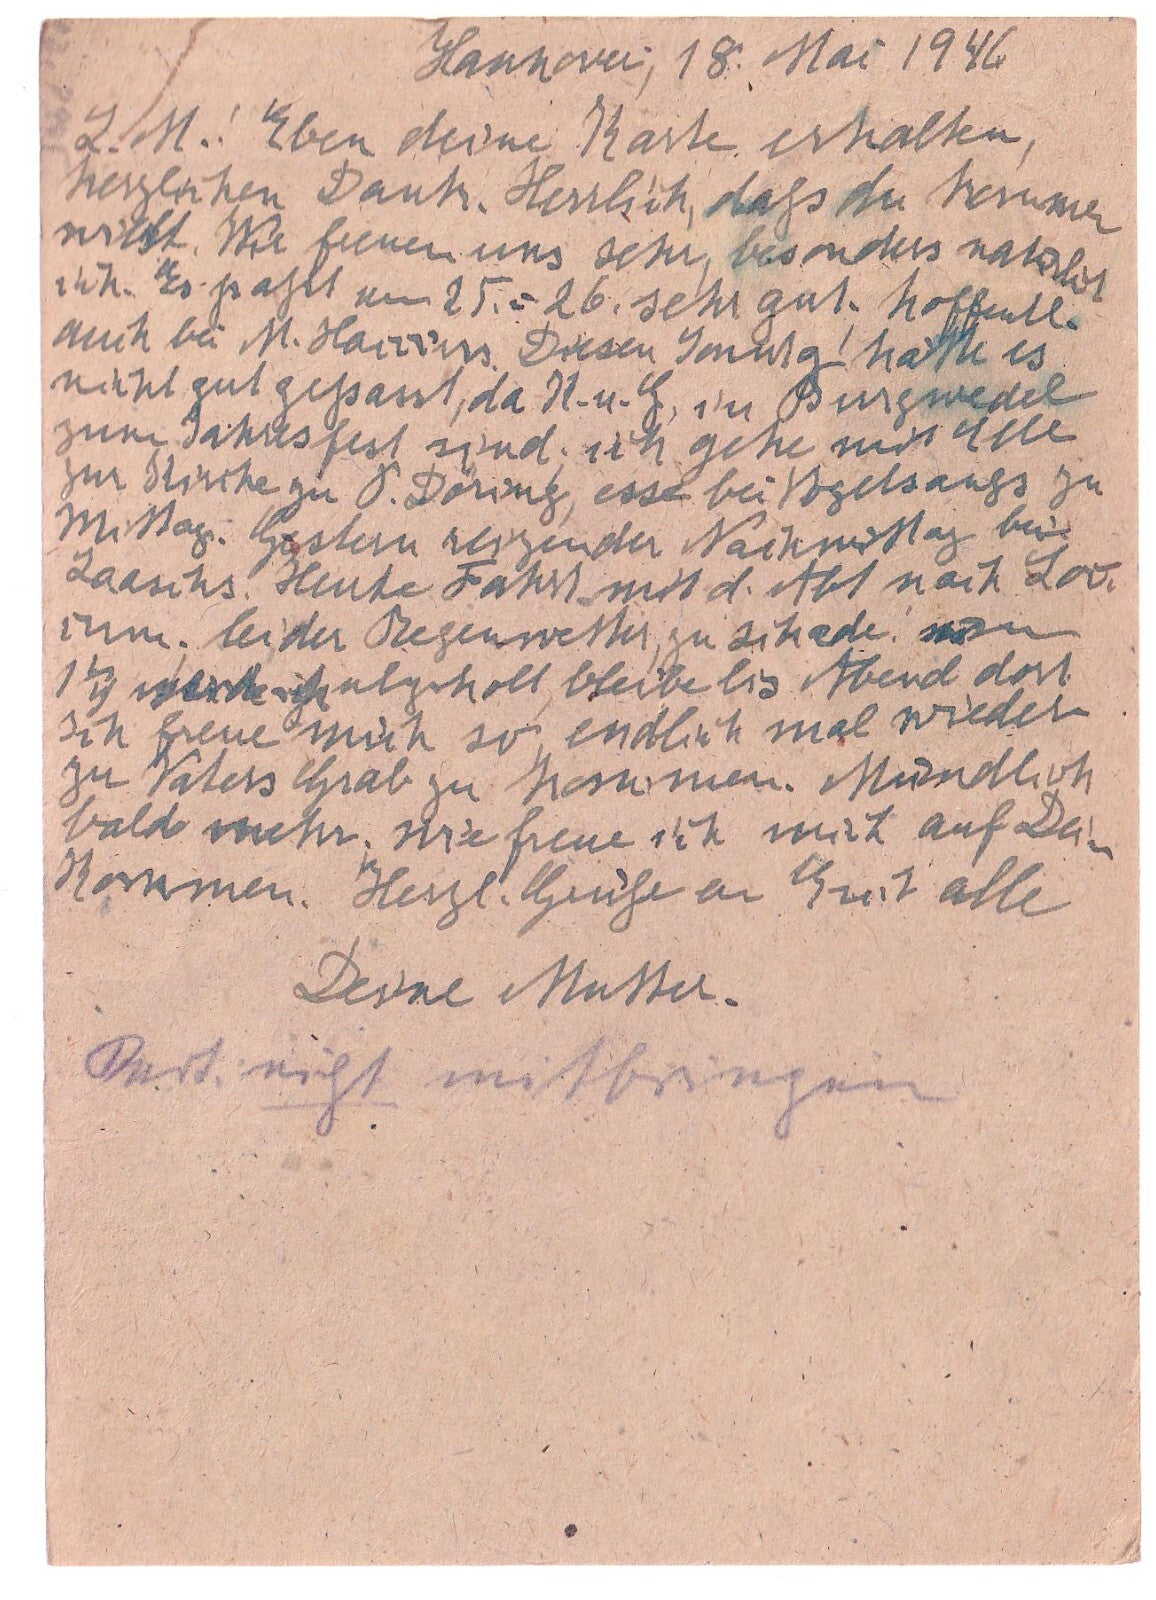 Hannover, 18. Mai 1946
L. M.! Eben deine Karte erhalten,
herzlichen Dank. Herrlich, daß du kommen
willst. Wir freuen uns sehr, besonders natürlich
ich. Es paßt am 25. - 26. sehr gut, hoffentl.
auch bei M. Diesen Sonntg! hätte es
nicht gut gepasst, da H. u. G. in Burgwedel
zum Jahresfest sind, ich gehe mit Elle
zur Kirche zu P. Döring, esse bei Vogelsangs zu
Mittag. Gestern reizender Nachmittag bei
Laaschs. Heute Fahrt mit d. Abt nach Loc
cum, leider Regenwetter, zu schade!
werde ich abgeholt, bleibe bis Abend dort
Ich freue mich so, endlich mal wieder
zu Vaters Grab zu kommen. Mündlich
bald mehr, wie freue ich mich auf Dein
Kommen. Herzl. Grüße an Euch alle
Deine Mutter.
nicht mitbringen